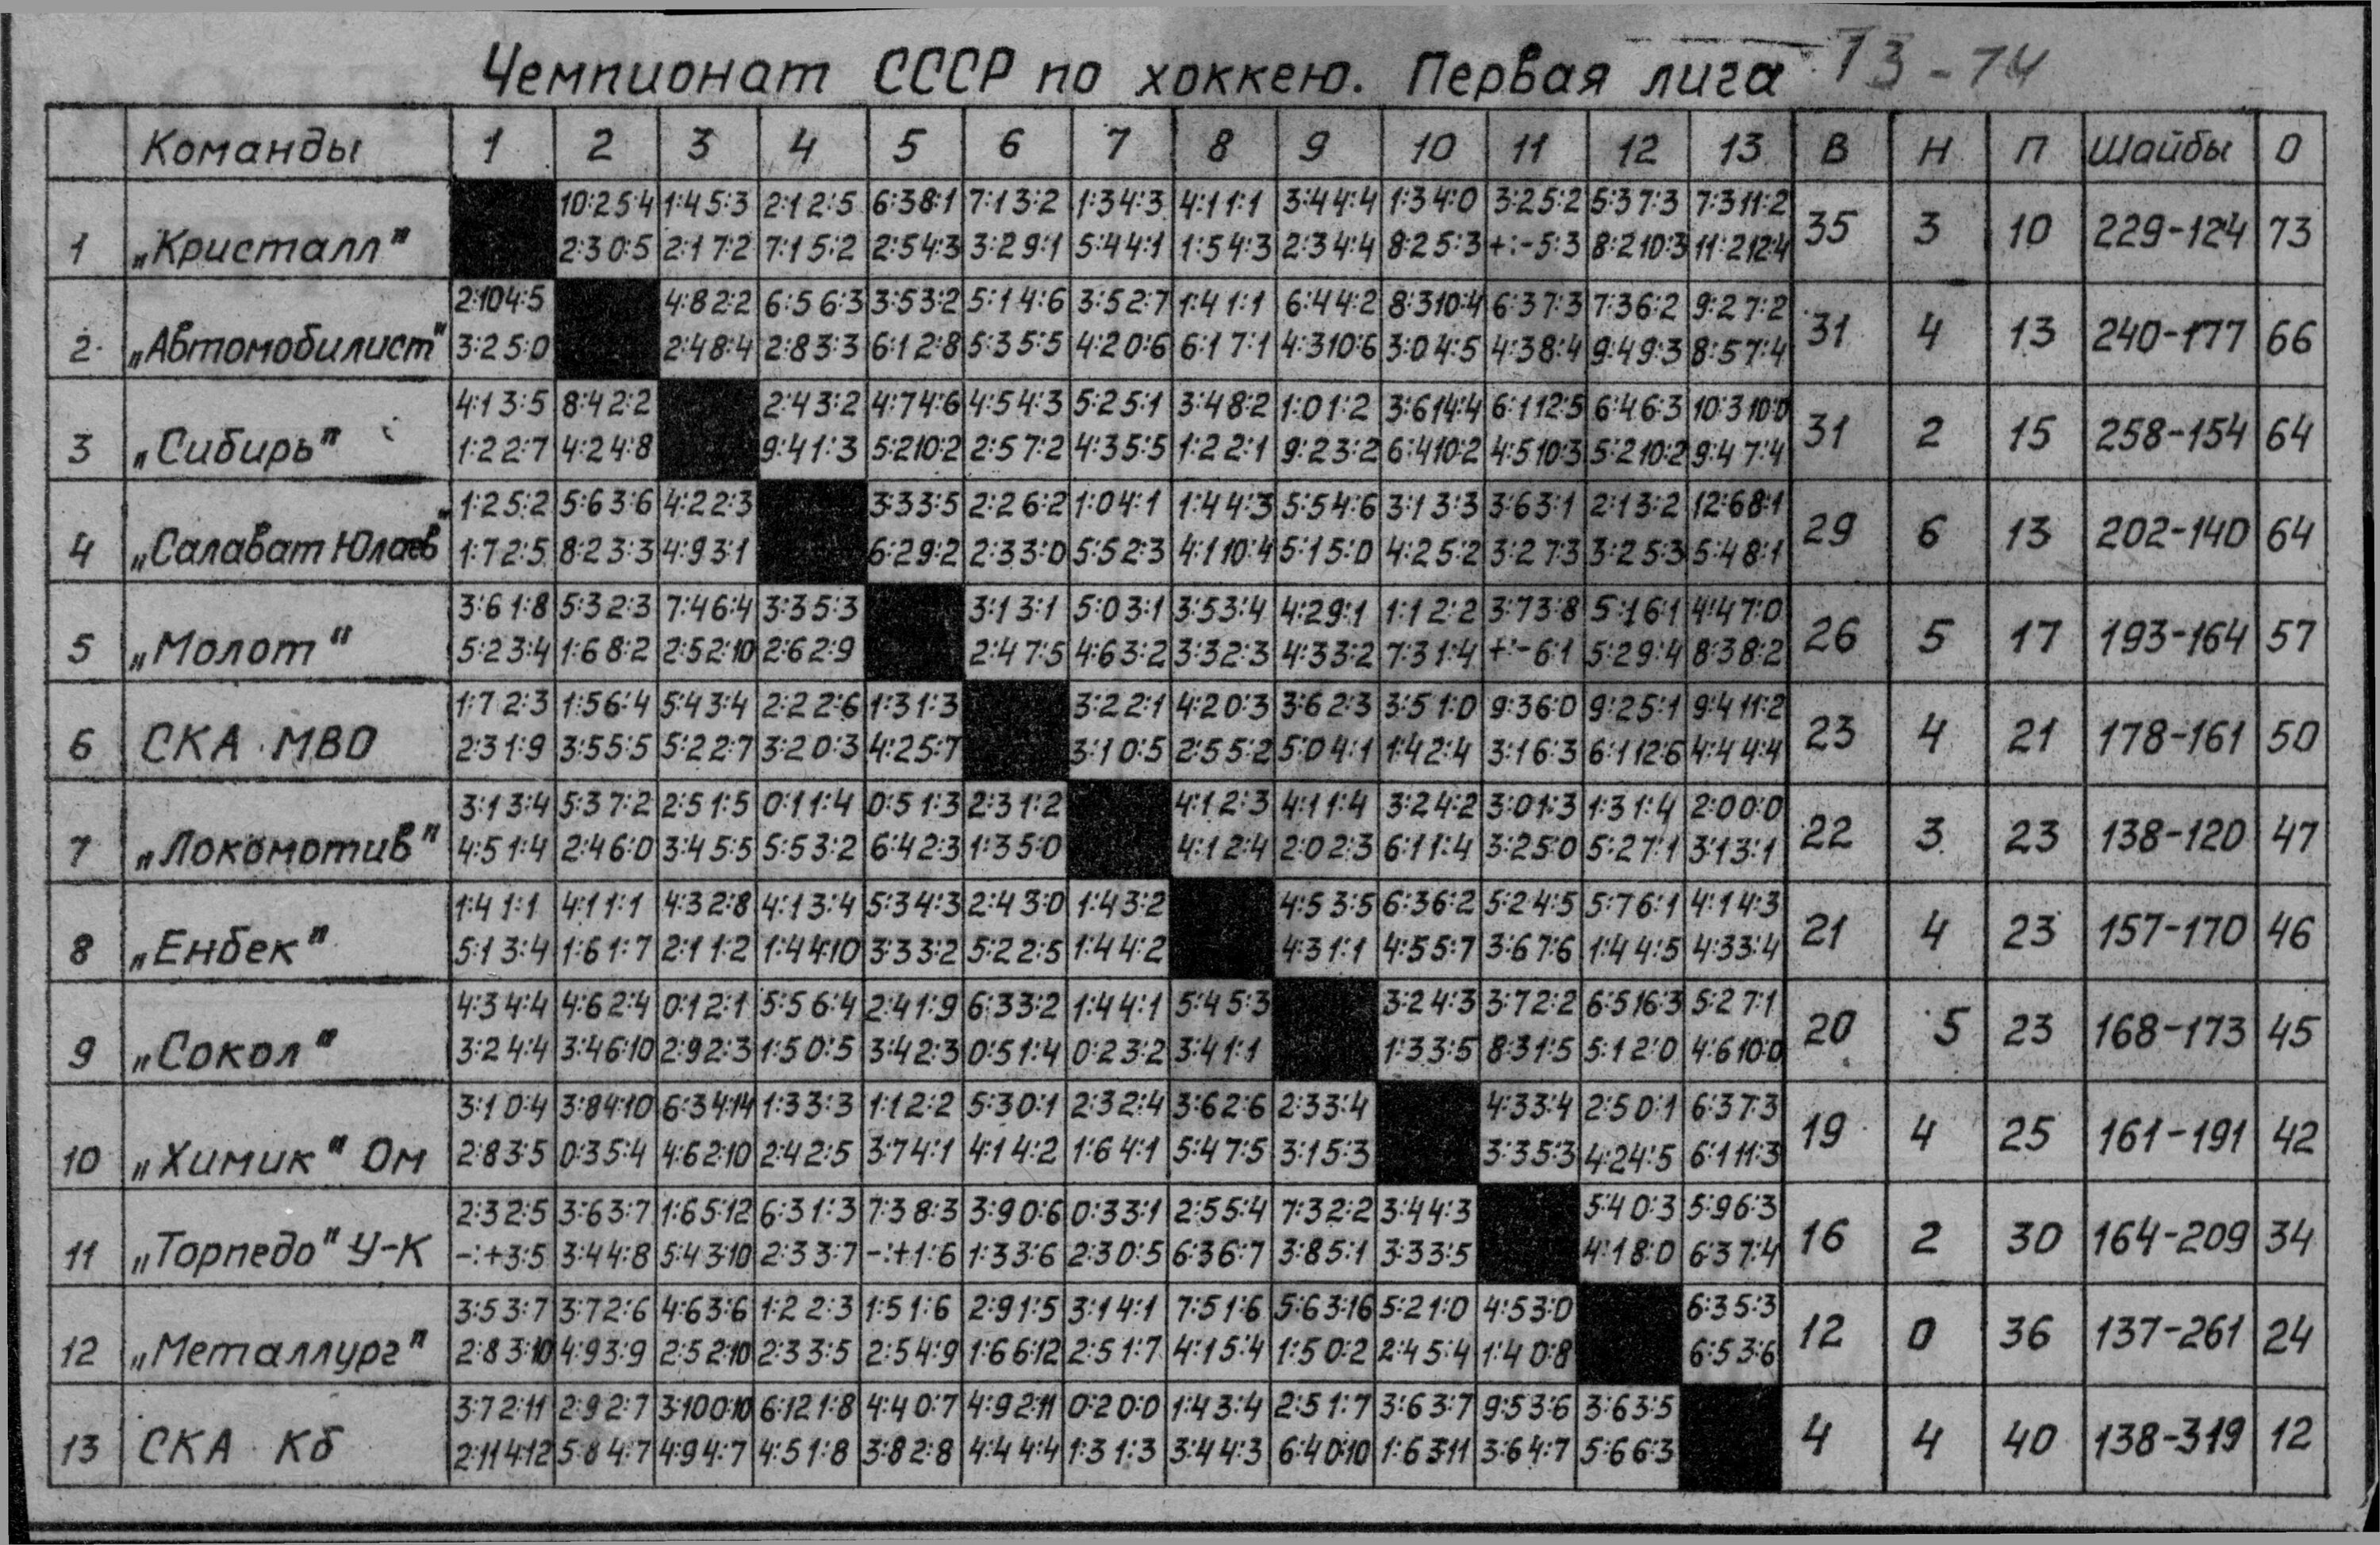 Чемпионат СССР по хоккею. Первая лига 73-74
Команды 1 2 3 4 5 6 7 8 9 10 11 12 13 В Н П Шайбы О
10:2 5:4 1:4 5:3 2:1 2:5 6:3 8:1 7:1 3:2 1:3 4:3 4:1 1:1 3:4 4:4 1:3 4:0 3:2 5:2 5:3 7:3 7:3 11:2
1 „Кристалл" 2:3 0:5 2:1 7:2 7:1 5:2 2:5 4:3 3:2 9:1 5:4 4:1 1:5 4:3 2:3 4:4 8:2 5:3 +:- 5:3 8:2 10:3 11:2 12:4 35 3 10 229-124 73
2:10 4:5 4:8 2:2 6:5 6:3 3:5 3:2 5:1 4:6 3:5 2:7 1:4 1:1 6:4 4:2 8:3 10:4 6:3 7:3 7:3 6:2 9:2 7:2
2 „Автомобилист" 3:2 5:0 2:4 8:4 2:8 3:3 6:1 2:8 5:3 5:5 4:2 0:6 6:1 7:1 4:3 10:6 3:0 4:5 4:3 8:4 9:4 9:3 8:5 7:4 31 4 13 240-177 66
4:1 3:5 8:4 2:2 2:4 3:2 4:7 4:6 4:5 4:3 5:2 5:1 3:4 8:2 1:0 1:2 3:6 14:4 6:1 12:5 6:4 6:3 10:3 10:0
3 „Сибирь" 1:2 2:7 4:2 4:8 9:4 1:3 5:2 10:2 2:5 7:2 4:3 5:5 1:2 2:1 9:2 3:2 6:4 10:2 4:5 10:3 5:2 10:2 9:4 7:4 31 2 15 258-154 64
1:2 5:2 5:6 3:6 4:2 2:3 3:3 3:5 2:2 6:2 1:0 4:1 1:4 4:3 5:5 4:6 3:1 3:3 3:6 3:1 2:1 3:2 12:6 8:1
4 „Салават Юлаев" 1:7 2:5 8:2 3:3 4:9 3:1 6:2 9:2 2:3 3:0 5:5 2:3 4:1 10:4 5:1 5:0 4:2 5:2 3:2 7:3 3:2 5:3 5:4 8:1 29 6 13 202-140 64
3:6 1:8 5:3 2:3 7:4 6:4 3:3 5:3 3:1 3:1 5:0 3:1 3:5 3:4 4:2 9:1 1:1 2:2 3:7 3:8 5:1 6:1 4:4 7:0
5 „Молот" 5:2 3:4 1:6 8:2 2:5 2:10 2:6 2:9 2:4 7:5 4:6 3:2 3:3 2:3 4:3 3:2 7:3 1:4 +:- 6:1 5:2 9:4 8:3 8:2 26 5 17 193-164 57
1:7 2:3 1:5 6:4 5:4 3:4 2:2 2:6 1:3 1:3 3:2 2:1 4:2 0:3 3:6 2:3 3:5 1:0 9:3 6:0 9:2 5:1 9:4 11:2
6 СКА МВО 2:3 1:9 3:5 5:5 5:2 2:7 3:2 0:3 4:2 5:7 3:1 0:5 2:5 5:2 5:0 4:1 1:4 2:4 3:1 6:3 6:1 12:6 4:4 4:4 23 4 21 178-161 50
3:1 3:4 5:3 7:2 2:5 1:5 0:1 1:4 0:5 1:3 2:3 1:2 4:1 2:3 4:1 1:4 3:2 4:2 3:0 1:3 1:3 1:4 2:0 0:0
7 „Локомотив" 4:5 1:4 2:4 6:0 3:4 5:5 5:5 3:2 6:4 2:3 1:3 5:0 4:1 2:4 2:0 2:3 6:1 1:4 3:2 5:0 5:2 7:1 3:1 3:1 22 3 23 138-120 47
1:4 1:1 4:1 1:1 4:3 2:8 4:1 3:4 5:3 4:3 2:4 3:0 1:4 3:2 4:5 3:5 6:3 6:2 5:2 4:5 5:7 6:1 4:1 4:3
8 „Енбек" 5:1 3:4 1:6 1:7 2:1 1:2 1:4 4:10 3:3 3:2 5:2 2:5 1:4 4:2 4:3 1:1 4:5 5:7 3:6 7:6 1:4 4:5 4:3 3:4 21 4 23 157-170 46
4:3 4:4 4:6 2:4 0:1 2:1 5:5 6:4 2:4 1:9 6:3 3:2 1:4 4:1 5:4 5:3 3:2 4:3 3:7 2:2 6:5 16:3 5:2 7:1
9 „Сокол" 3:2 4:4 3:4 6:10 2:9 2:3 1:5 0:5 3:4 2:3 0:5 1:4 0:2 3:2 3:4 1:1 1:3 3:5 8:3 1:5 5:1 2:0 4:6 10:0 20 5 23 168-173 45
3:1 0:4 3:8 4:10 6:3 4:14 1:3 3:3 1:1 2:2 5:3 0:1 2:3 2:4 3:6 2:6 2:3 3:4 4:3 3:4 2:5 0:1 6:3 7:3
10 „Химик" Ом 2:8 3:5 0:3 5:4 4:6 2:10 2:4 2:5 3:7 4:1 4:1 4:2 1:6 4:1 5:4 7:5 3:1 5:3 3:3 5:3 4:2 4:5 6:1 11:3 19 4 25 161-191 42
2:3 2:5 3:6 3:7 1:6 5:12 6:3 1:3 7:3 8:3 3:9 0:6 0:3 3:1 2:5 5:4 7:3 2:2 3:4 4:3 5:4 0:3 5:9 6:3
11 „Торпедо" У-К -:+ 3:5 3:4 4:8 5:4 3:10 2:3 3:7 -:+ 1:6 1:3 3:6 2:3 0:5 6:3 6:7 3:8 5:1 3:3 3:5 4:1 8:0 6:3 7:4 16 2 30 164-209 34
3:5 3:7 3:7 2:6 4:6 3:6 1:2 2:3 1:5 1:6 2:9 1:5 3:1 4:1 7:5 1:6 5:6 3:16 5:2 1:0 4:5 3:0 6:3 5:3
12 „Металлург" 2:8 3:10 4:9 3:9 2:5 2:10 2:3 3:5 2:5 4:9 1:6 6:12 2:5 1:7 4:1 5:4 1:5 0:2 2:4 5:4 1:4 0:8 6:5 3:6 12 0 36 137-261 24
3:7 2:11 2:9 2:7 3:10 0:10 6:12 1:8 4:4 0:7 4:9 2:11 0:2 0:0 1:4 3:4 2:5 1:7 3:6 3:7 9:5 3:6 3:6 3:5
13 СКА Кб 2:11 4:12 5:8 4:7 4:9 4:7 4:5 1:8 3:8 2:8 4:4 4:4 1:3 1:3 3:4 4:3 6:4 0:10 1:6 3:11 3:6 4:7 5:6 6:3 4 4 40 138-319 12